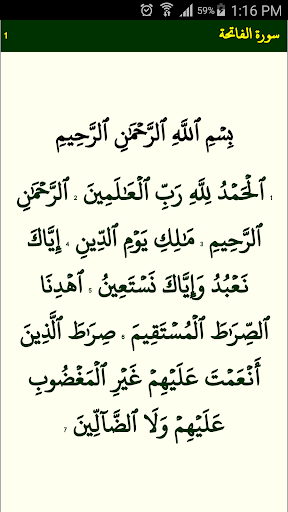 59% 1:16 PM
سورة الفاتحة 1
بِسْمِ ٱللَّهِ ٱلرَّحْمَٰنِ ٱلرَّحِيمِ
1 ٱلْحَمْدُ لِلَّهِ رَبِّ ٱلْعَٰلَمِينَ 2 ٱلرَّحْمَٰنِ
ٱلرَّحِيمِ 3 مَٰلِكِ يَوْمِ ٱلدِّينِ 4 إِيَّاكَ
نَعْبُدُ وَإِيَّاكَ نَسْتَعِينُ 5 ٱهْدِنَا
ٱلصِّرَٰطَ ٱلْمُسْتَقِيمَ 6 صِرَٰطَ ٱلَّذِينَ
أَنْعَمْتَ عَلَيْهِمْ غَيْرِ ٱلْمَغْضُوبِ
عَلَيْهِمْ وَلَا ٱلضَّآلِّينَ 7